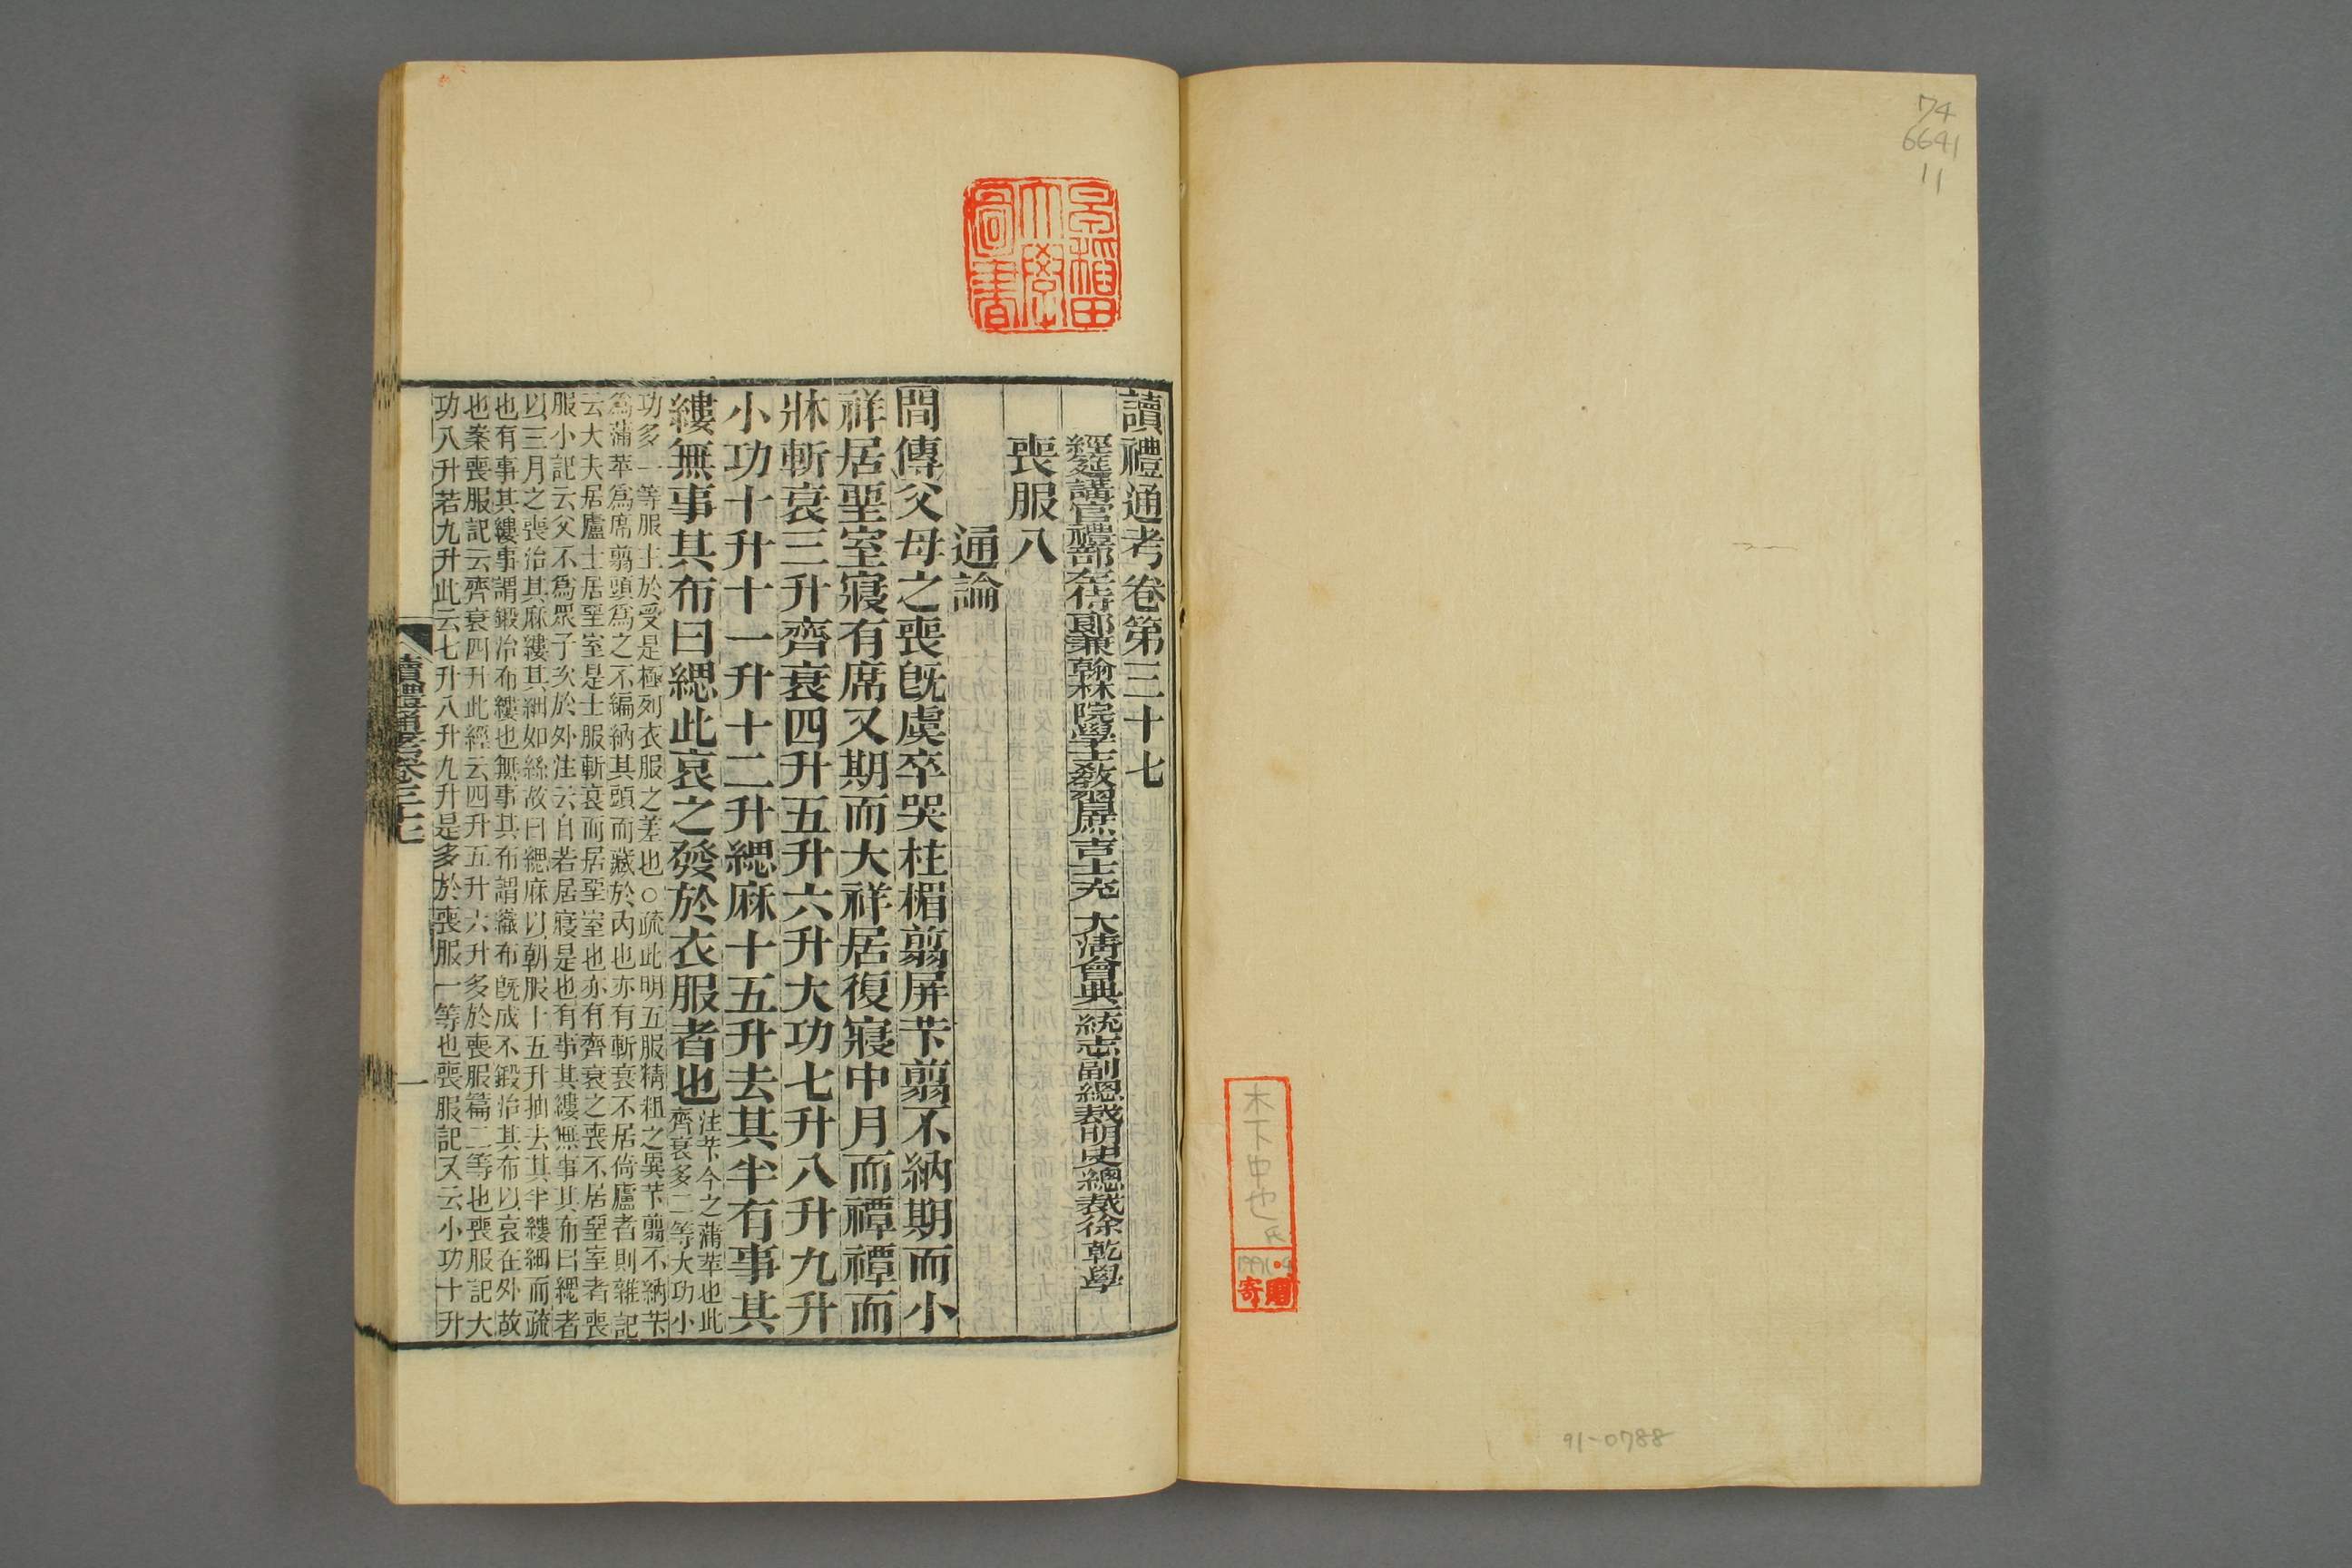 讀禮通考卷第三十七
經筵講官禮部左侍郎兼翰林院學士敎習庶吉士充 大淸會典一統志副總裁明史總裁徐乾學
喪服八
通論
間傳父母之喪旣虞卒哭柱楣翦屏芐翦不納期而小
祥居堊室寢有席又期而大祥居復寢中月而禫禫而
牀斬衰三升齊衰四升五升六升大功七升八升九升
小功十升十一升十二升緦麻十五升去其半有事其
縷無事其布曰緦此哀之發於衣服者也
注芐今之蒲苹也此
齊衰多二等大功小
功多一等服主於受是極列衣服之差也○疏此明五服精粗之異芐翦不納芐
爲蒲苹爲席翦頭爲之不編納其頭而藏於內也亦有斬衰不居倚廬者則雜記
云大夫居廬士居堊室是士服斬衰而居堊室也亦有齊衰之喪不居堊室者喪
服小記云父不爲眾子次於外注云自若居寢是也有事其縷無事其布曰緦者
以三月之喪治其麻縷其細如絲故曰緦麻以朝服十五升抽去其半縷細而疏
也有事其縷事謂鍛治布縷也無事其布謂織布旣成不鍛治其布以哀在外故
也案喪服記云齊衰四升此經云四升五升六升多於喪服篇二等也喪服記大
功八升若九升此云七升八升九升是多於喪服一等也喪服記又云小功十升
讀禮通考卷三十七
一
早稻田
大學
圖書
74
6641
11
木下中也氏
寄贈
91-0788